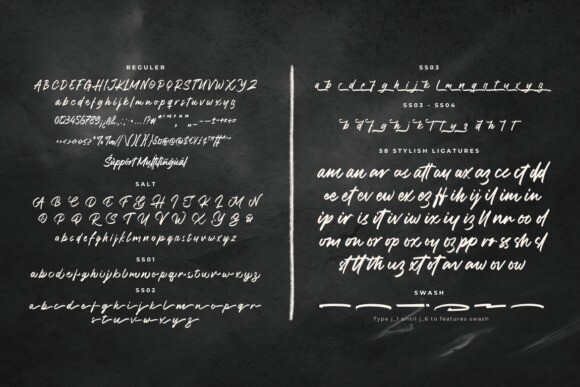 REGULER
ABCDEFGHIJKLMNOPQRSTUVWXYZ
abcdefghijklmnopqrstuvwxyz
Support Multilingual
SALT
ABCDEFGHIJKLMN
OPQRSTUVWXYZ
abcdefghijklmnopqrstuvwxyz
SS01
abcdefghijklmnopqrstuvwxyz
SS02
abcdefghijklmnopqr
stuvwxyz
SS03
SS03 - SS04
58 STYLISH LIGATURES
am an ar as att au ux az cc ct dd
ee et ev ew ex ez ff ih ij il im in
ip ir is it iv iw ix iy iz ll nn oo ol
om on or op ox oy oz pp rr ss sh sl
st tt th uz xt ot av aw ov ow
SWASH
Type j_1 until j_6 to features swash